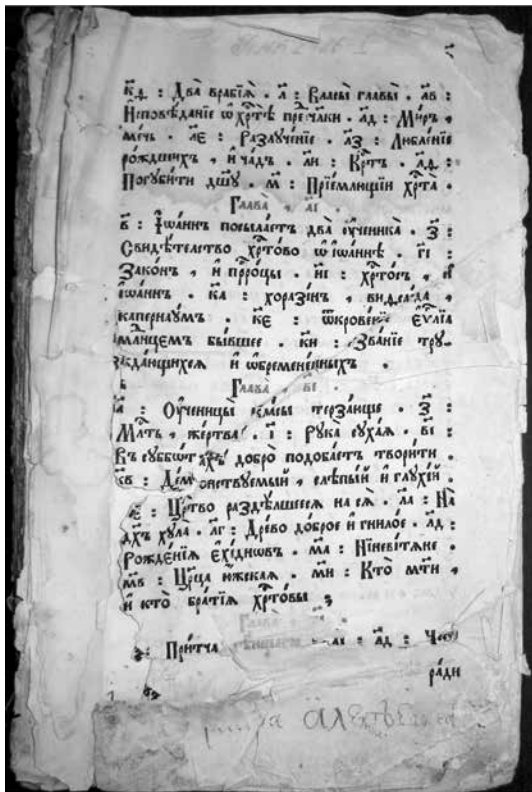 к҃д : Два̀ врабїѧ̑ . л҃ : Власы̀ главы̀ . л҃в :
И҆сповѣ́данїе ѡ҆ хр҇тѣ̀ пре чл҃ки . л҃д : Ми́ръ ,
ме́чь . л҃є : Разлꙋче́нїе . л҃з : Любле́нїе
ро́ждшихъ , и҆ ча́дъ . л҃и : Кр҇тъ . л҃ѳ :
Погꙋби́ти дш҃ꙋ . м҃ : Прїе́млющїи хр҇та̀ .
Глава̀ , а҃і .
в҃ : І҆ѡа́ннъ посыла́етъ два̀ ᲂу҆ченика̀ . з҃ :
Свидѣ́телство хр҇то́во ѡ҆ і҆ѡа́ннѣ . г҃і :
Зако́нъ , и҆ прⷪ҇ро́цы . и҃і : хр҇то́съ , и҆
і҆ѡа́ннъ . к҃а : хоразі́нъ , виѳсаи́да ,
капернаꙋ́мъ . к҃є : ѿкрове́нїе є҆ѵⷢ҇лїа
млⷣнцемъ бы́вшее . к҃и : Зва́нїе трꙋ-
жда́ющихсѧ и҆ ѡ҆бремене́нныхъ .
Глава̀ , в҃і .
а҃ : Оу҆ченицы̀ кла́сы терза́юще . з҃ :
Млⷭ҇ть , же́ртва . і҃ : Рꙋка̀ сꙋха́ѧ . в҃і :
Въ сꙋббѡ́тахъ добро̀ подоба́етъ твори́ти .
к҃в : Де́монствꙋемый , слѣпы́й и҆ глꙋхі́й .
к҃є : Црⷭ҇тво раздѣ́лшеесѧ на сѧ̀ . л҃а : На
дх҃ъ хꙋла̀ . л҃г : Дре́во до́брое и҆ гнило́е . л҃д :
Рожде́нїѧ є҆хі́дновъ . м҃а : Нїневі́тѧне .
м҃в : Цр҃ца ю҆́жскаѧ . м҃и : Кто̀ мт҃и ,
и҆ кто̀ бра́тїѧ хр҇то́вы ,
Глава̀
При́тча л҃д : Чесѡ̀
ра́ди